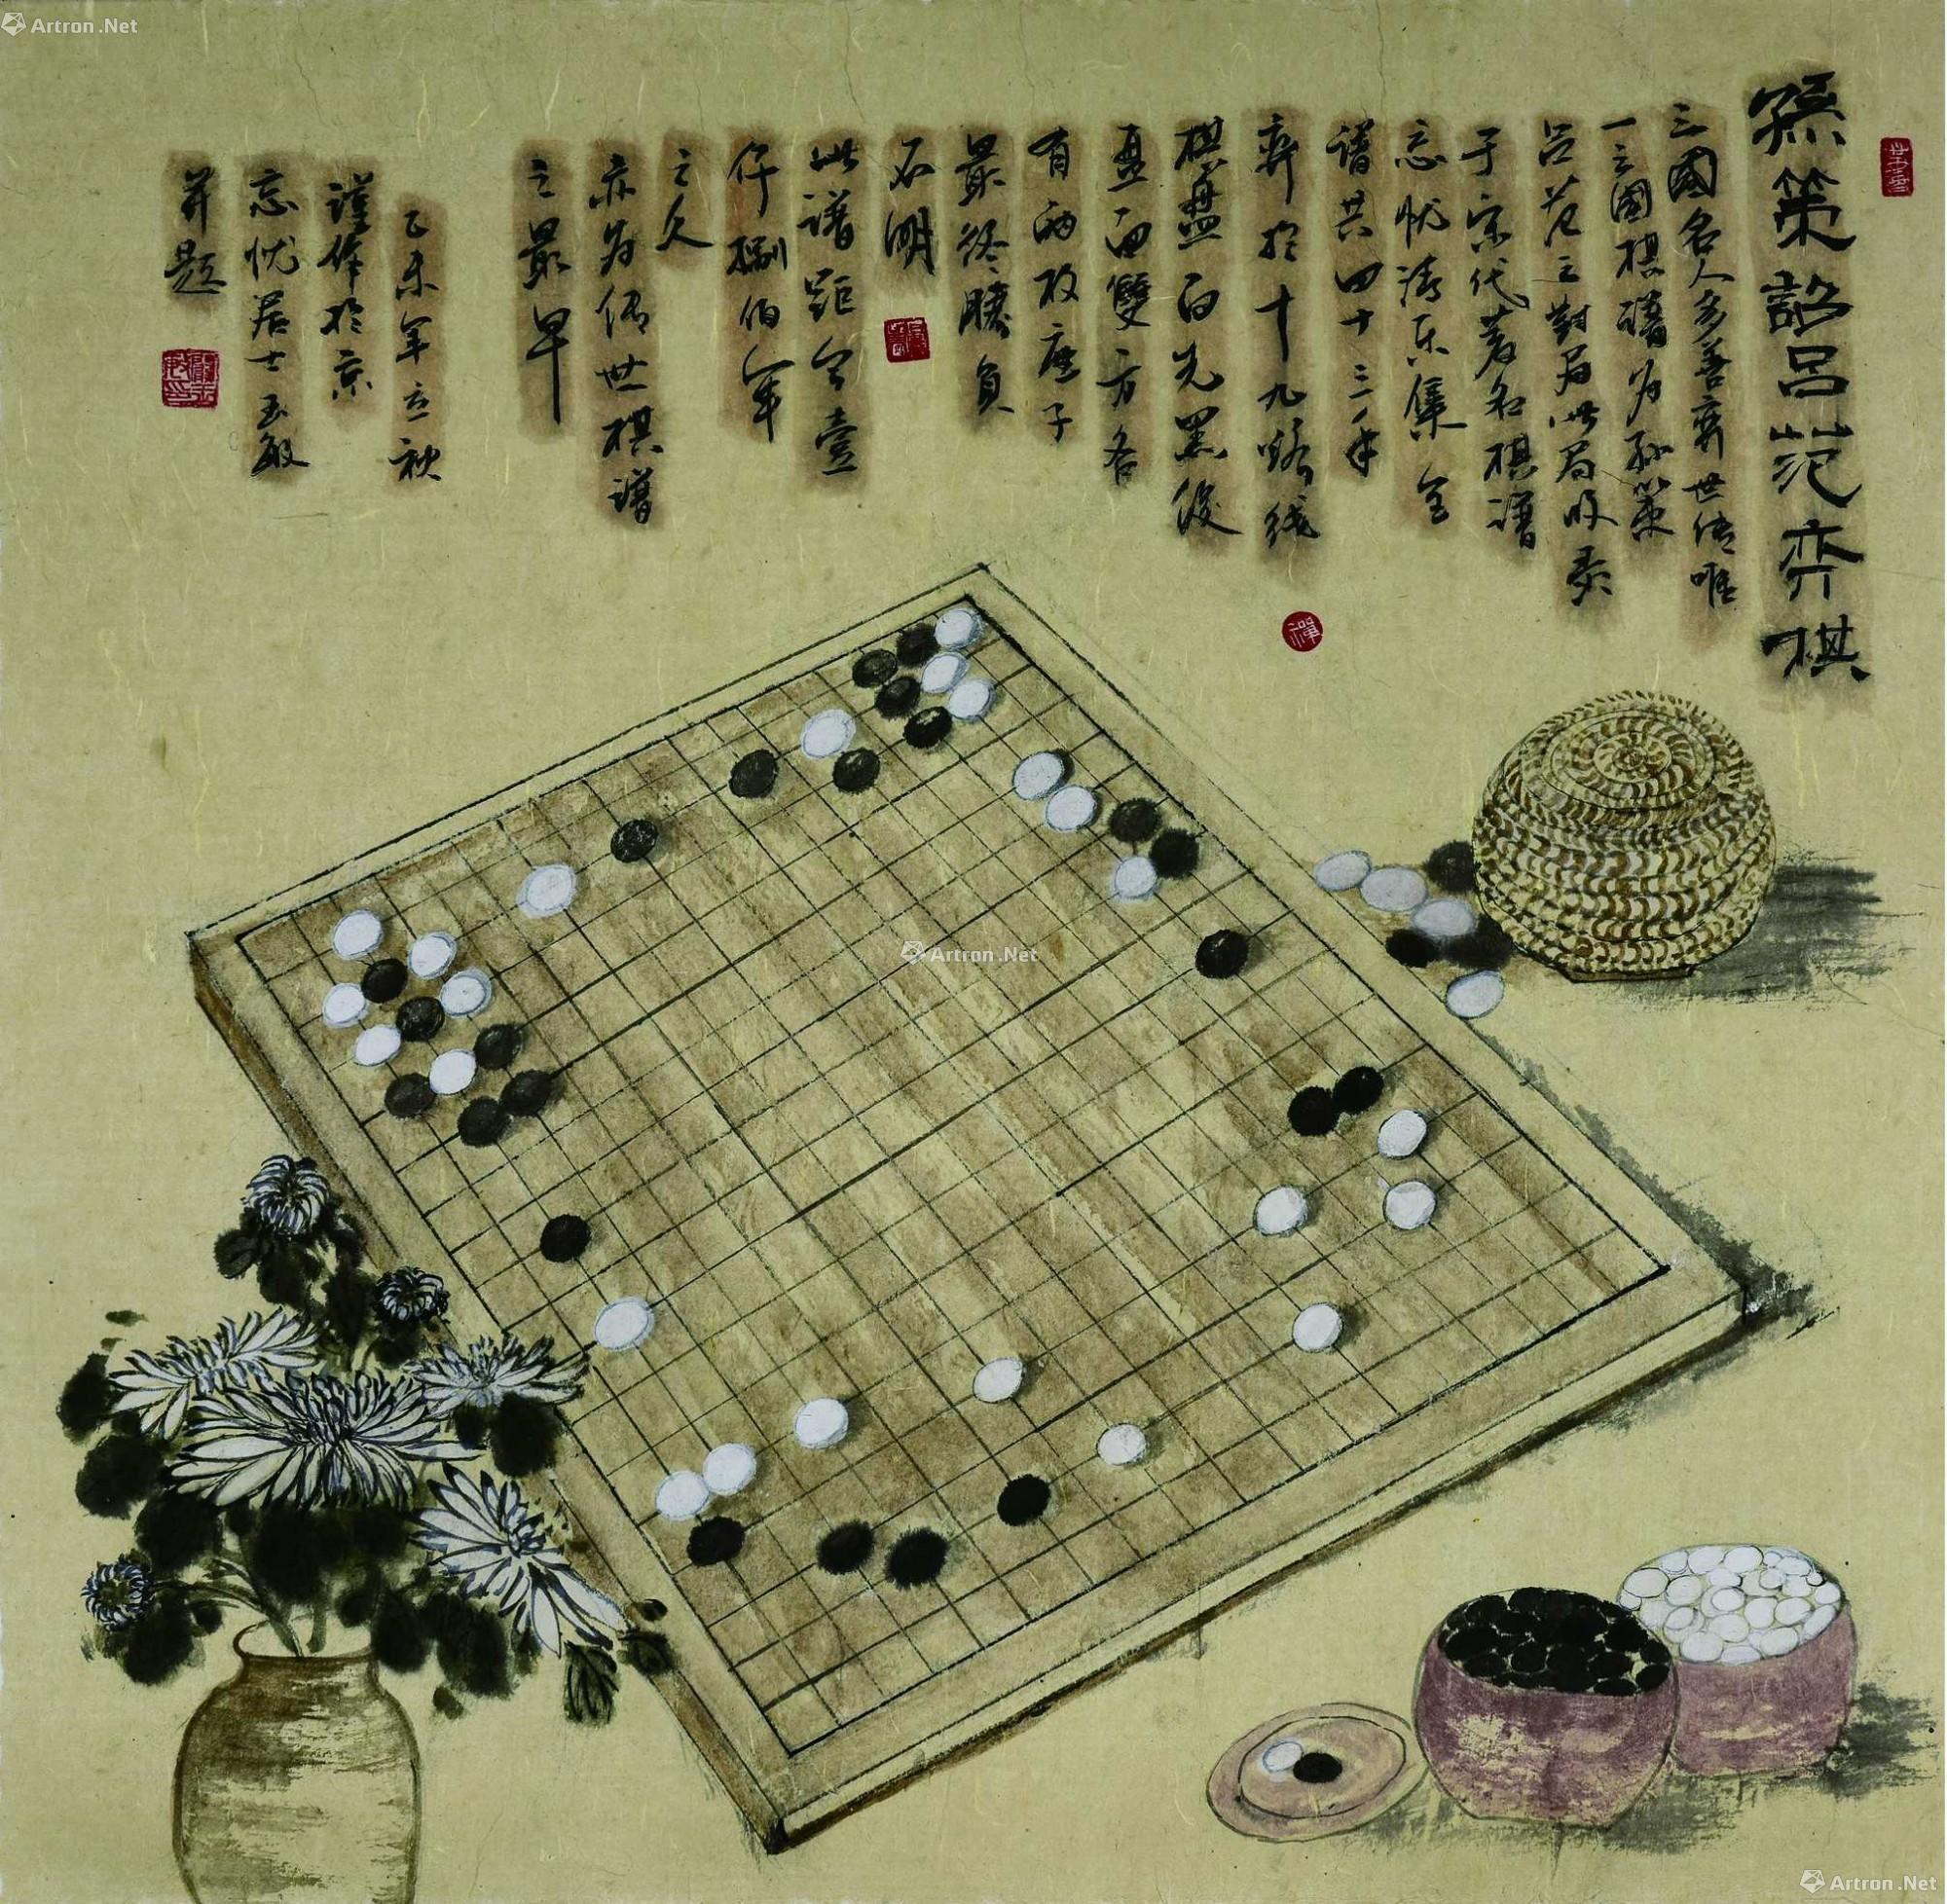 Artron.Net
孫策詔呂范弈棋
三國名人多善弈世传唯
一三國棋譜为孙策
呂范之對局此局收录
于宋代著名棋譜
忘忧清乐集全
譜共四十三手
弈於十九路线
棋盘白先黑後
盘面雙方各
有兩枚座子
最终勝負
不明
此譜距今壹
仟捌佰年
之久
亦为传世棋譜
之最早
乙未年立秋
謹作於京
忘忧居士玉敏
并题
禪
Artron.Net
Artron.Net